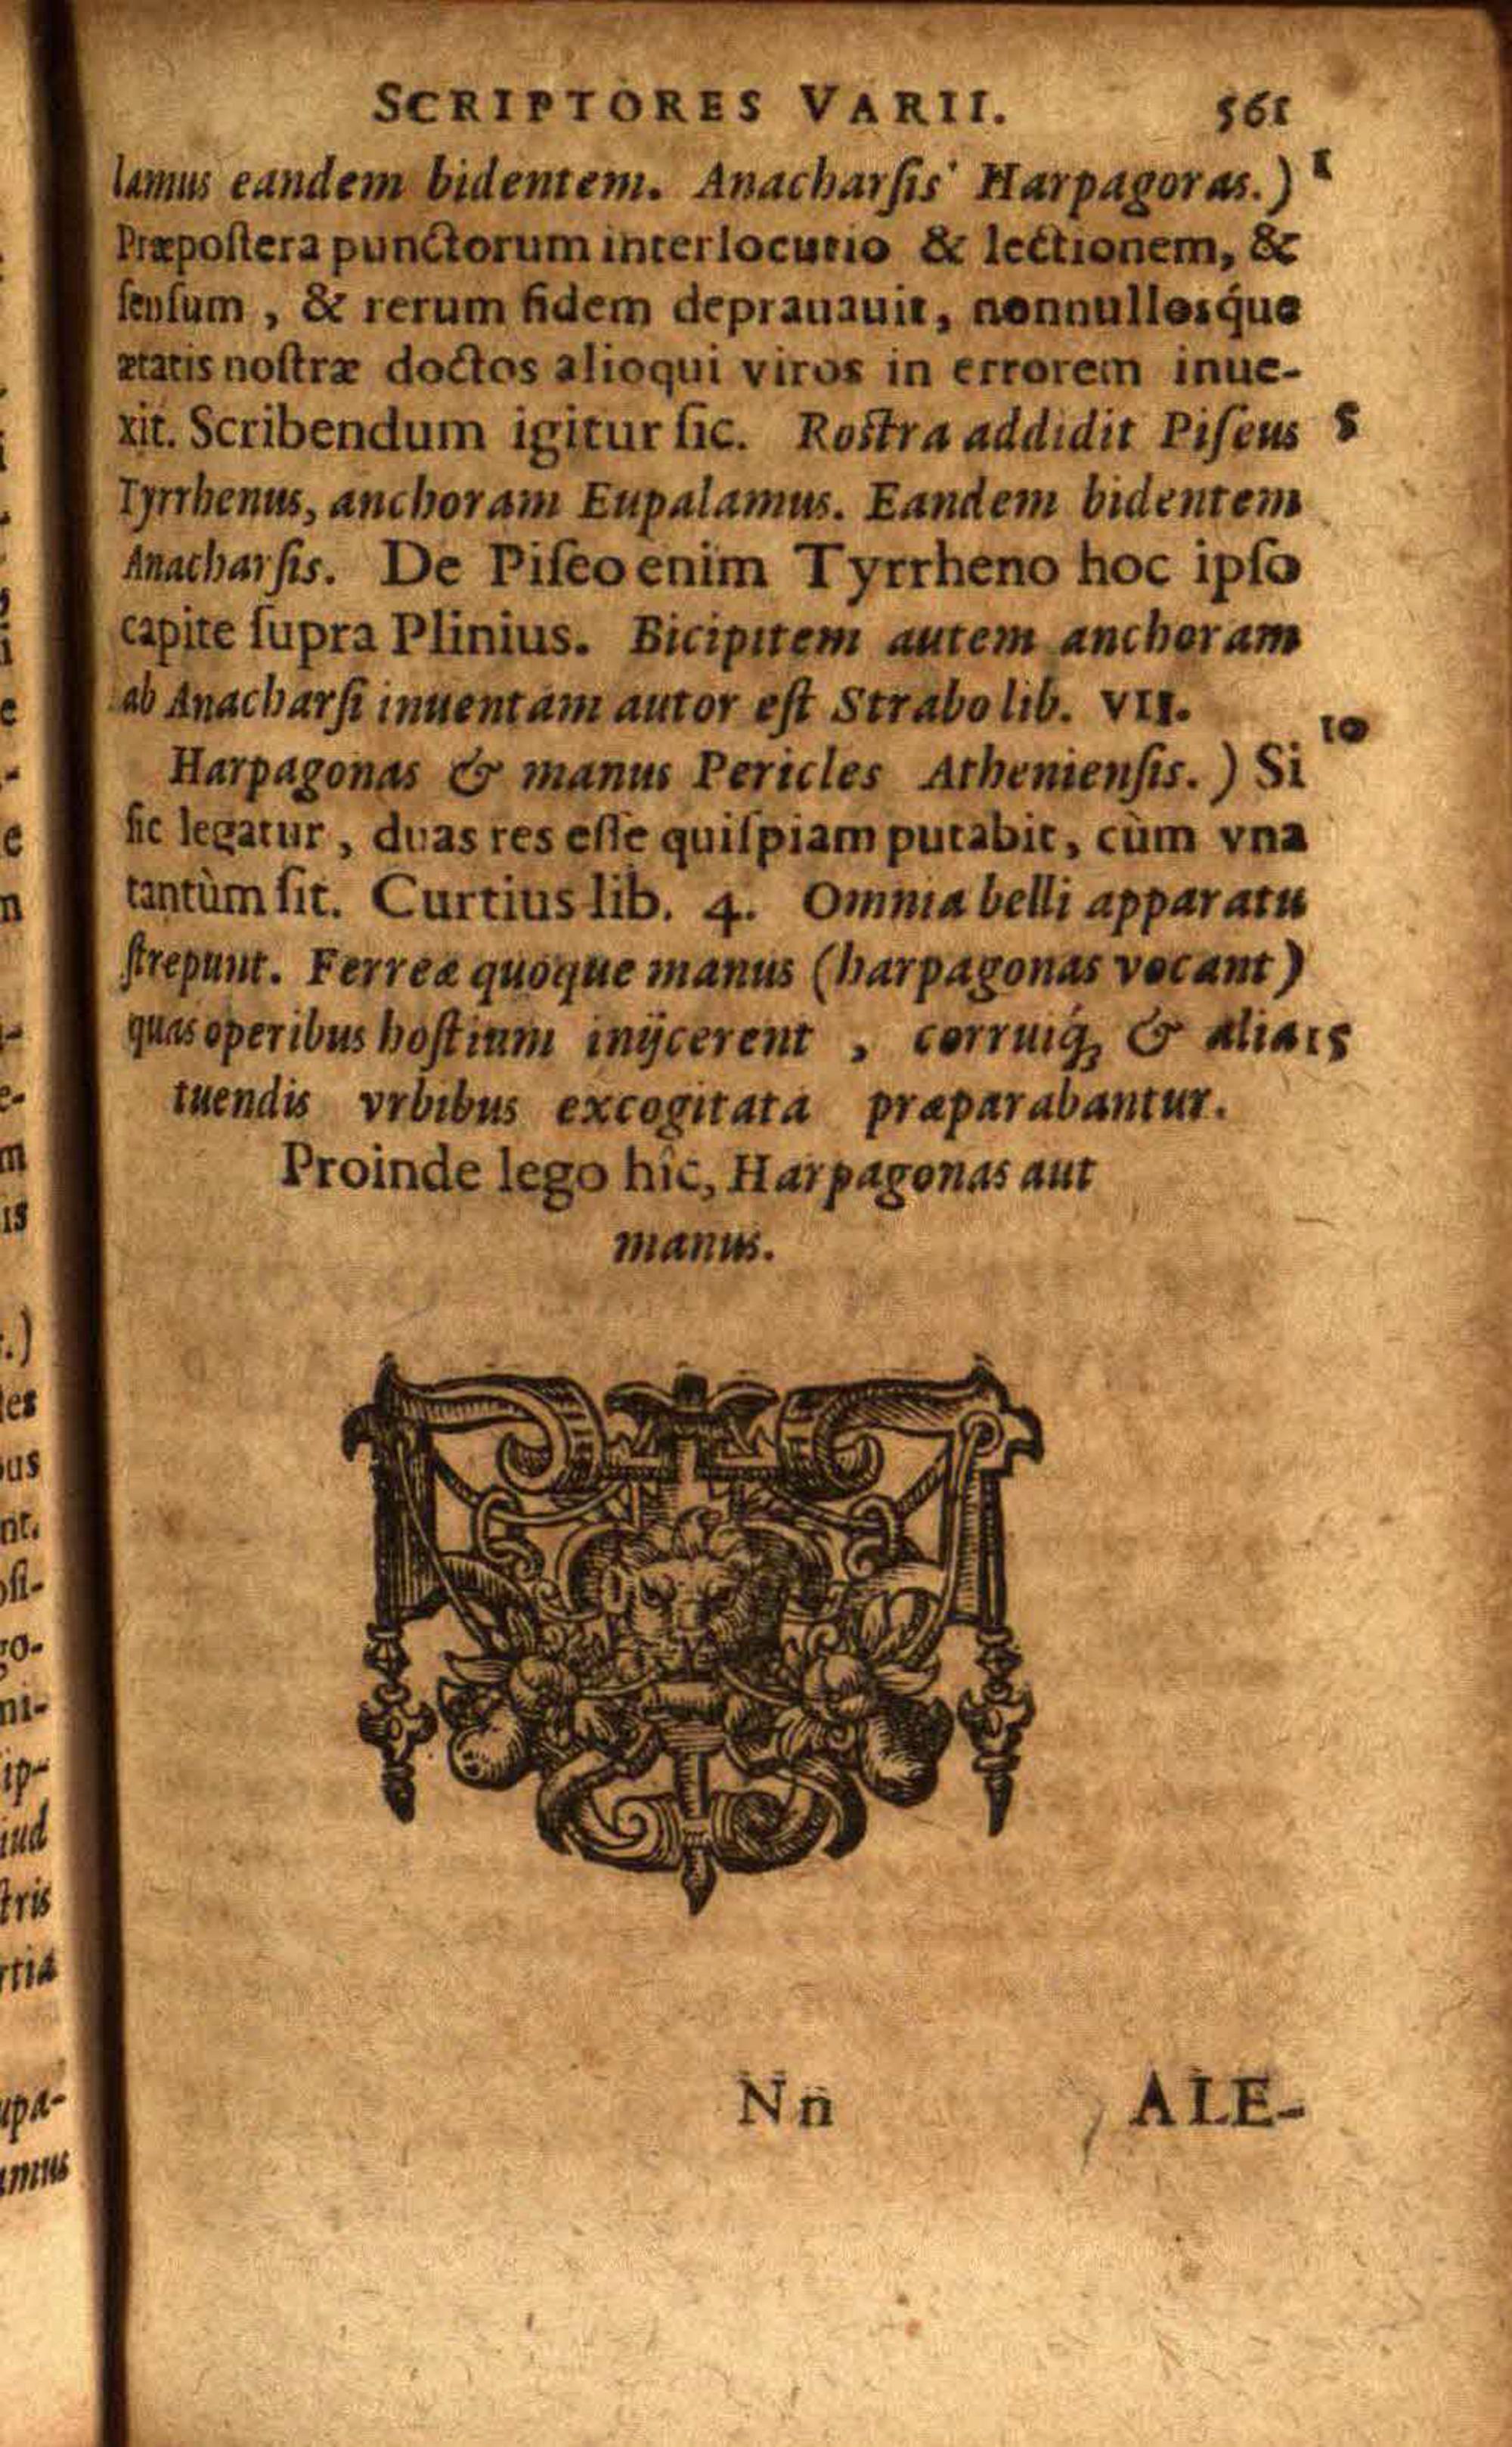 SCRIPTORES VARII. 561
lamus eandem bidentem. Anacharſis Harpagoras.) 1
Præpoſtera punctorum interlocutio & lectionem, &
ſenſum, & rerum fidem deprauauit, nonnulloſq́ue
ætatis noſtræ doctos alioqui viros in errorem inue-
xit. Scribendum igitur ſic. Roſtra addidit Piſeus 5
Tyrrhenus, anchoram Eupalamus. Eandem bidentem
Anacharſis. De Piſeo enim Tyrrheno hoc ipſo
capite ſupra Plinius. Bicipitem autem anchoram
ab Anacharſi inuentam autor eſt Strabo lib. VII.
Harpagonas & manus Pericles Athenienſis.) Si 10
ſic legatur, duas res eſſe quiſpiam putabit, cùm vna
tantùm ſit. Curtius lib. 4. Omnia belli apparatu
ſtrepunt. Ferreæ quoque manus (harpagonas vocant)
quas operibus hoſtium inijcerent, corruiq́; & alia 15
tuendis vrbibus excogitata præparabantur.
Proinde lego hîc, Harpagonas aut
manus.
Nn ALE-
ter
ous
nt.
oſi-
go-
ni-
ip-
iud
ſtris
rtia
upa-
amus